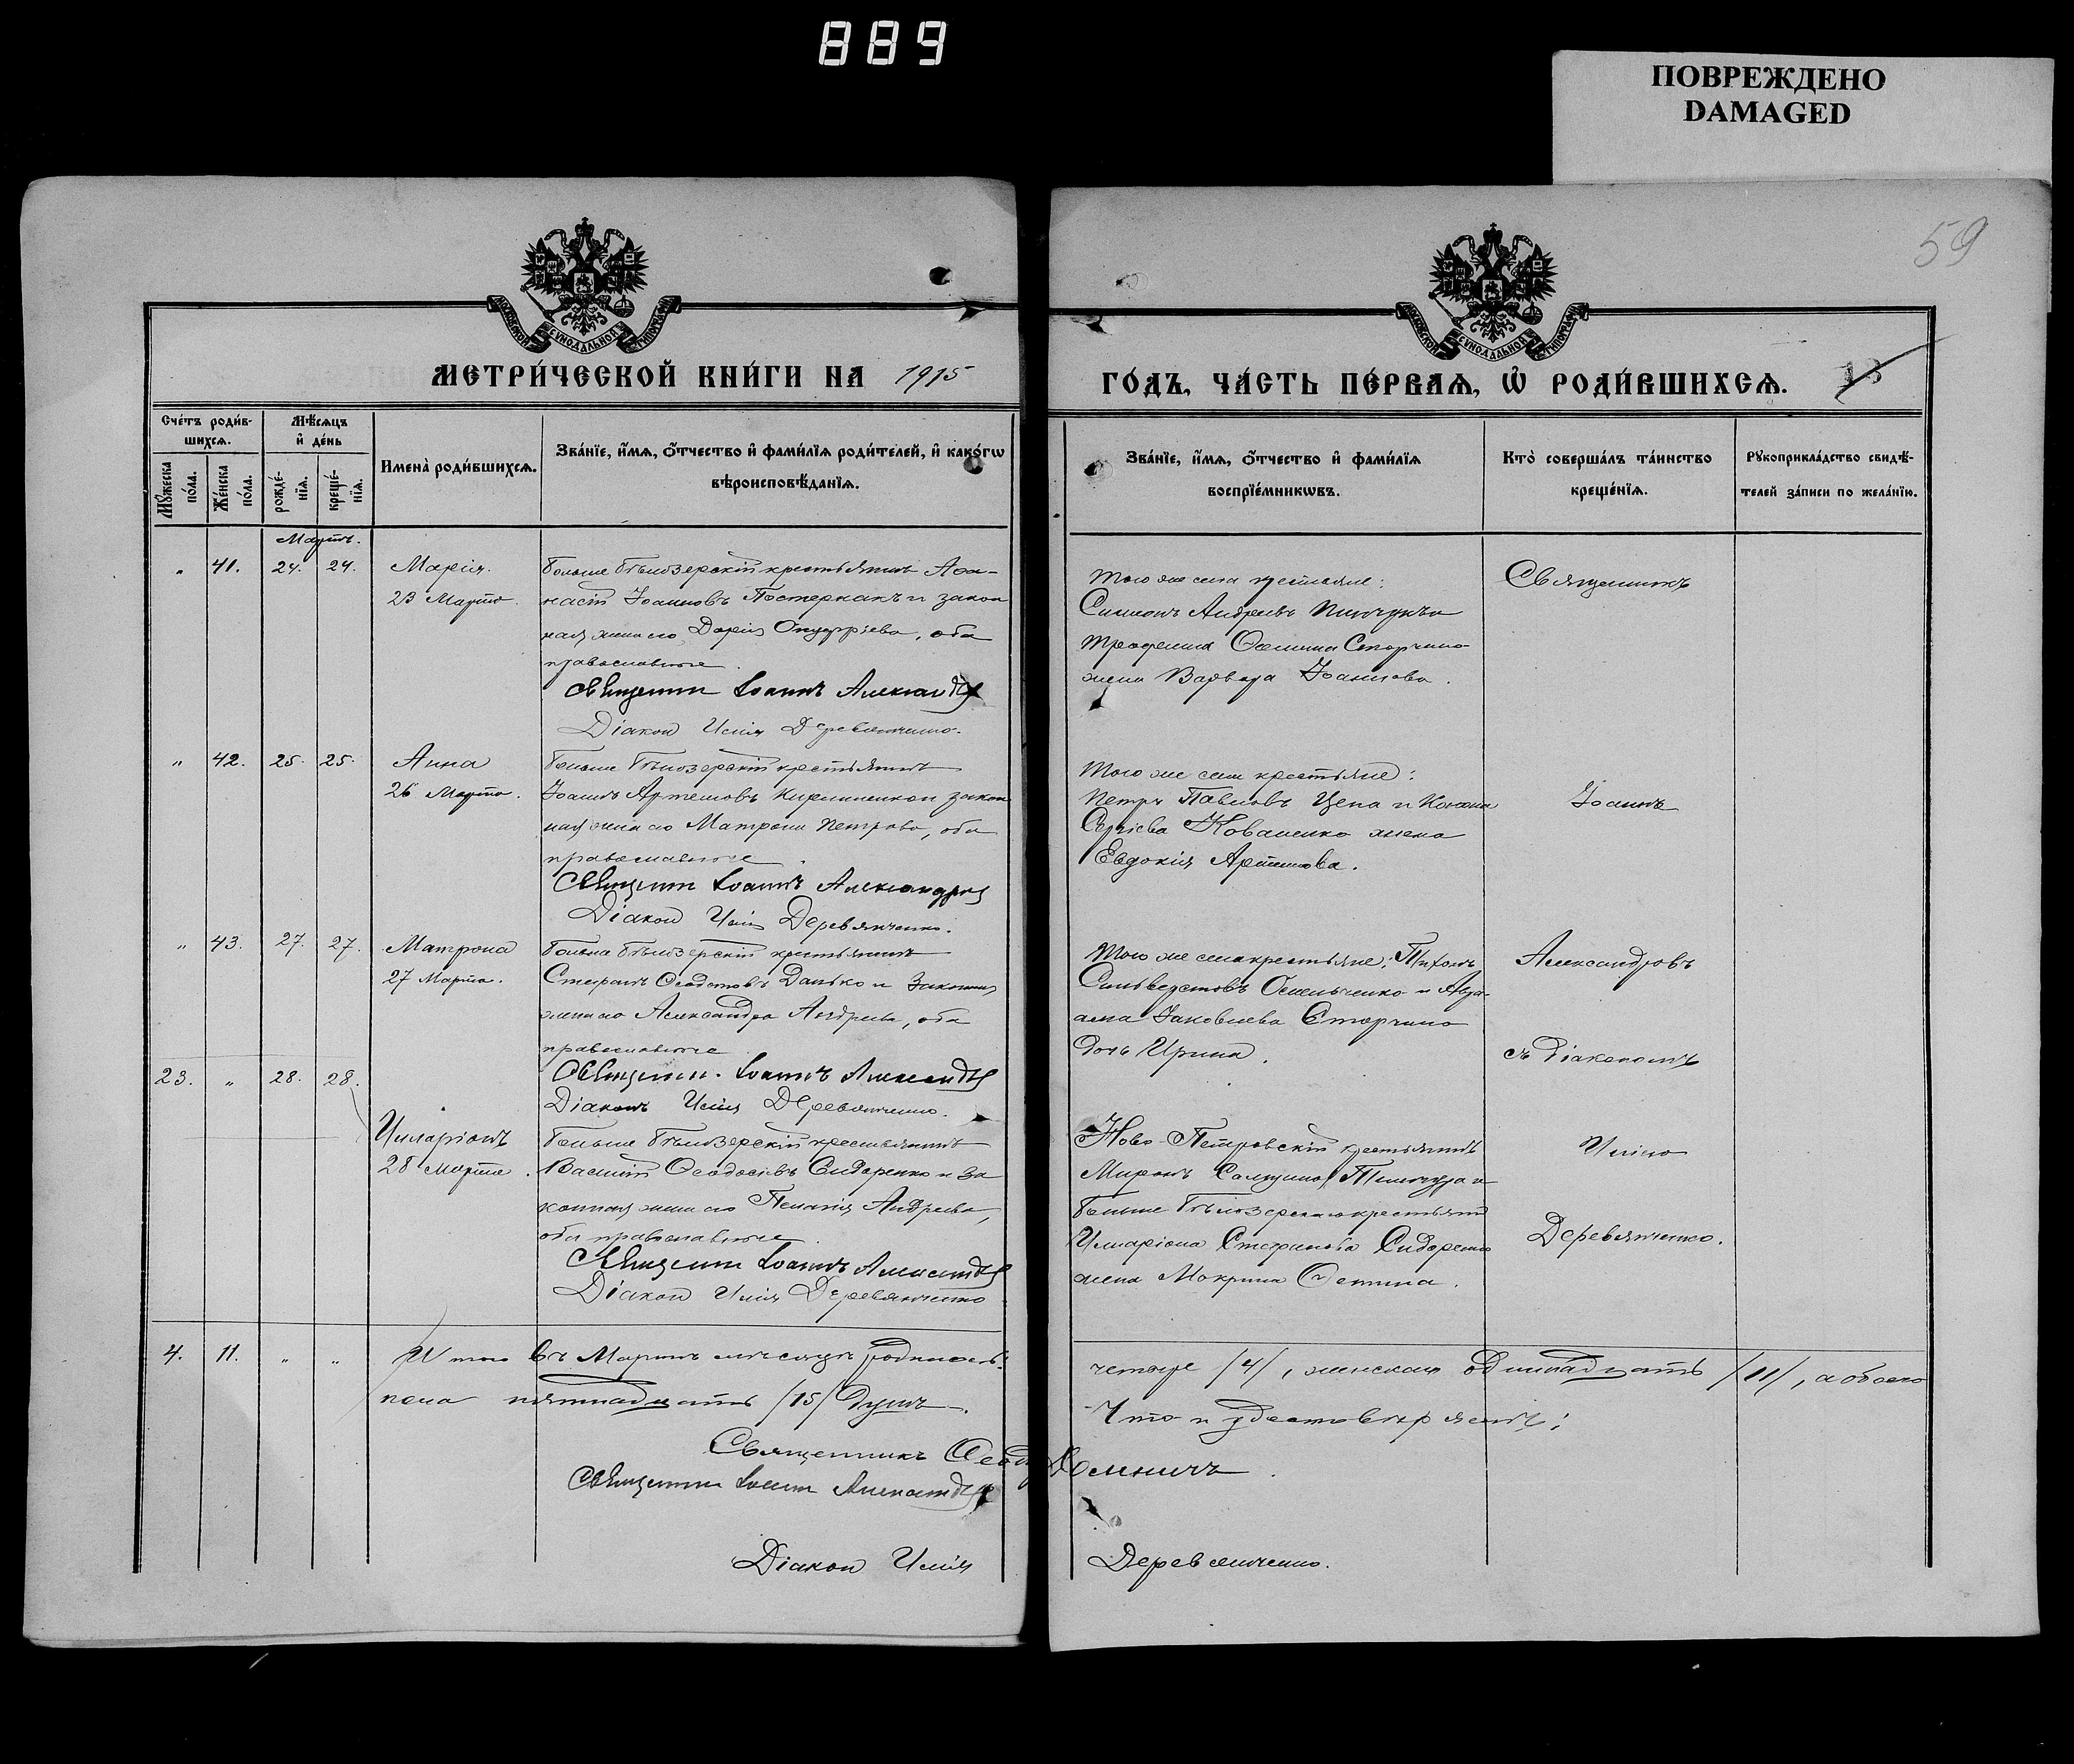 889
ПОВРЕЖДЕНО
DAMAGED
59
МОСКОВСКОЙ СѴНОДАЛЬНОЙ ТИПОГРАФІИ
МОСКОВСКОЙ СѴНОДАЛЬНОЙ ТИПОГРАФІИ
МЕТРИ́ЧЕСКОЙ КНИ́ГИ НА 1915
ГО́ДЪ, ЧА́СТЬ ПЕ́РВАѦ, Ѽ РОДИ́ВШИХСѦ. 13
Сче́тъ роди́в-
шихсѧ.
Мꙋжеска по́ла.
Же́нска по́ла.
Мѣсѧцъ
и҆ де́нь
рожде́-нїѧ.
креще́-нїѧ.
Имена̀ роди́вшихсѧ.
Зва́нїе, и҆́мѧ, ѻ҆́тчество и҆ фами́лїѧ роди́телей, и҆ како́гѡ
вѣроисповѣ́данїѧ.
Зва́нїе, и҆́мѧ, ѻ҆́тчество и҆ фами́лїѧ
воспрїе́мникѡвъ.
Кто̀ соверша́лъ та́инство
креще́нїѧ.
Рꙋкоприкла́дство свидѣ́-
телей за́писи по жела́нїю.
Мартъ.
" 41. 24. 24. Марія.
23 Марта.
Больше Бѣлозерскій крестьянинъ Аѳа-
насій Іоанновъ Постернакъ и закон
ная жена его Дарія Онуфріева, оба
православные.
Священникъ Іоаннъ Александровъ
Діакон Илія Деревянченко.
Того же села крестьяне:
Симеонъ Андреевъ Пинчукъ и
Трофима Стогниенко
жена Варвара Іоаннова.
Священникъ
" 42. 25. 25. Анна
26 Марта.
Больше Бѣлозерскій крестьянинъ
Іоаннъ Артемовъ Кириленко и закон
ная жена его Матрона Петрова, оба
православные.
Священникъ Іоаннъ Александровъ
Діакон Илія Деревянченко.
Того же села крестьяне:
Петръ Павловъ Цепа и
Сергіева Коваленко жена
Евдокія Артемова.
Іоаннъ
" 43. 27. 27. Матрона
27 Марта.
Больше Бѣлозерскій крестьянинъ
Стефанъ Ѳеодотовъ Данько и законная
жена его Александра Андреева, оба
православные
Священник. Іоаннъ Александровъ
Діаконъ Илія Деревянченко.
Того же села крестьяне: Тихонъ
Сильверстовъ Омельченко и
Іаковлева
дочь Ирина.
Александровъ
съ діакономъ
23. " 28. 28.
Иларіонъ
28 Марта.
Больше Бѣлозерскій крестьянинъ
Василій Ѳеодосіевъ Сидоренко и за
конная жена его Пелагія Андреева,
оба православные.
Священникъ Іоаннъ Александровъ
Діакон Илія Деревянченко
Ново-Петровскій крестьянинъ
Миронъ и
Больше Бѣлозерскаго крестьян
Иларіона Стефанова Сидоренко
жена Мокрина Фотина.
Иліею
Деревянченко.
4. 11. " " Итого въ Мартѣ мѣсяцѣ родилось:
четыре /4/, женскаго одиннадцать /11/, а обоего
пола пятнадцать /15/ душъ.
Что и удостовѣряемъ:
Священникъ
Священникъ Іоаннъ Александровъ
Діакон Илія Деревянченко.